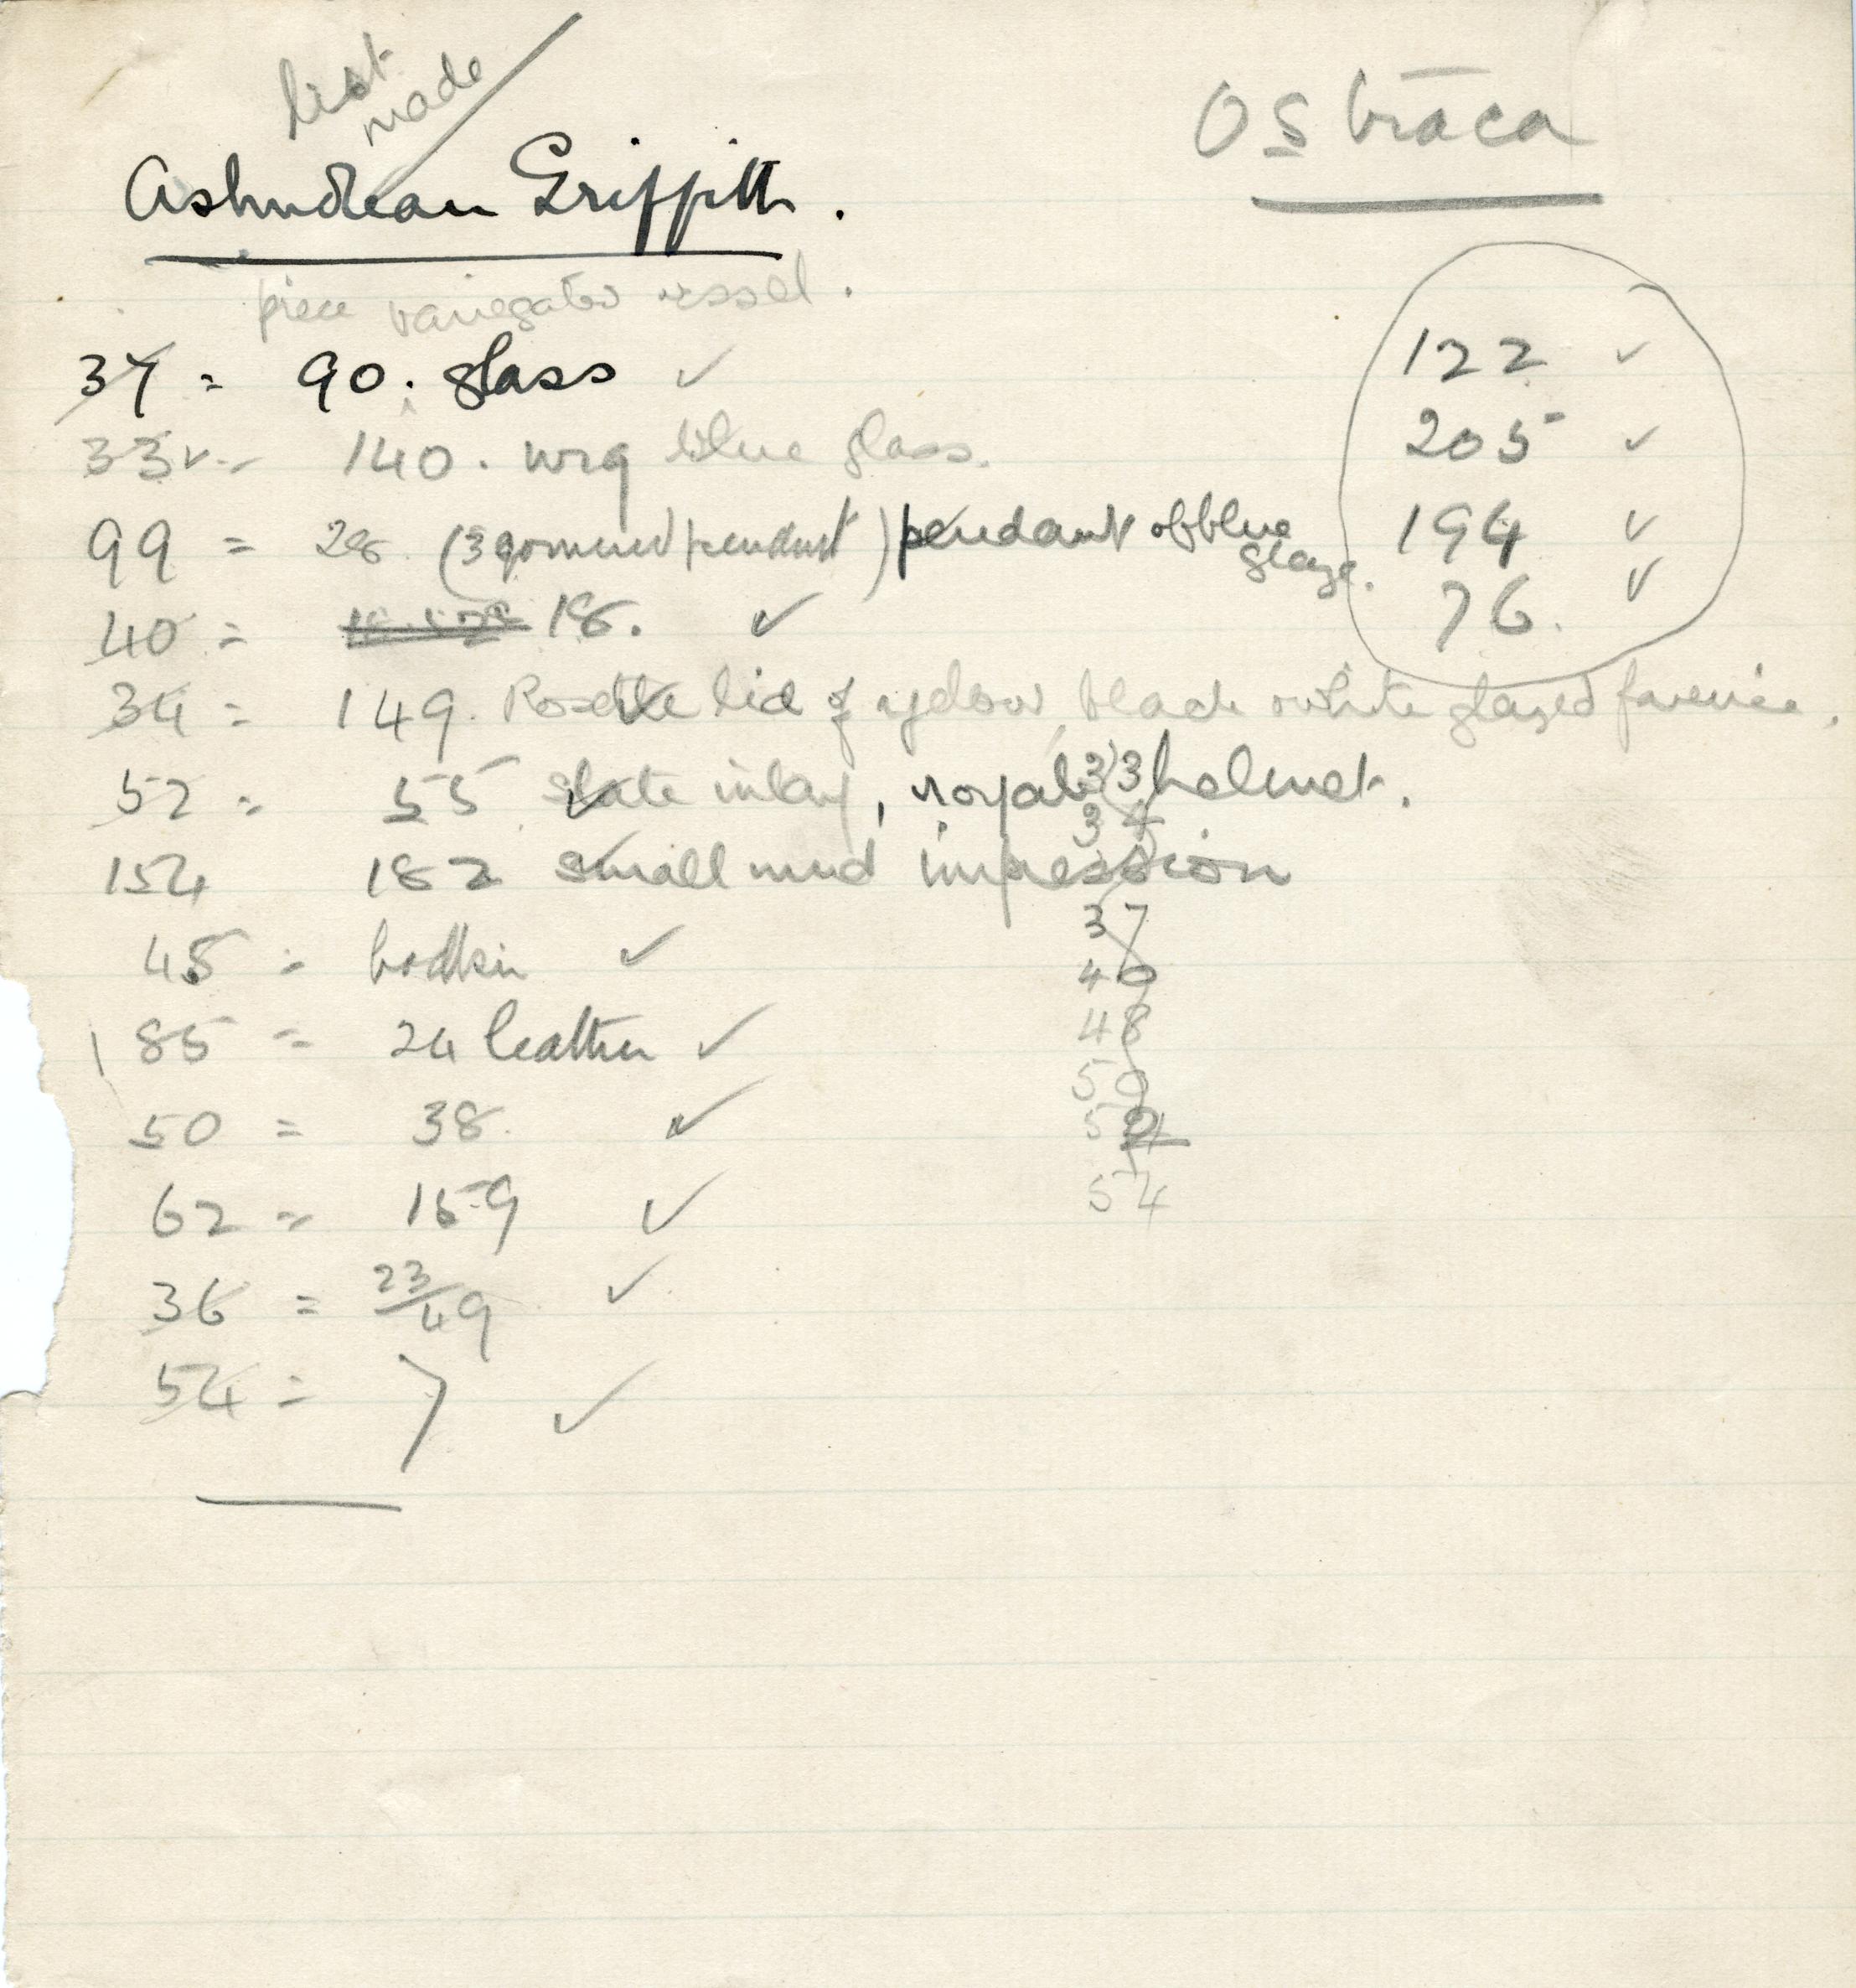 list
made
Ostraca
Ashmolean Griffith.
piece variegated vessel.
37 = 90. glass ✓
33 ✓ = 140. wrq blue glass.
99 = 28 (3 pendant) pendant of blue
glaze.
40 = 18. ✓
34 = 149. Rosette lid of yellow, black & white glazed faience.
52 = 55 slate inlay, royal helmet.
154 182 small mud impression
45 = bodkin ✓
85 = 24 leather ✓
50 = 38. ✓
62 = 159 ✓
36 = 23/49 ✓
54 = 7 ✓
122 ✓
205 ✓
194 ✓
76. ✓
33
34
37
40
48
50
52
54